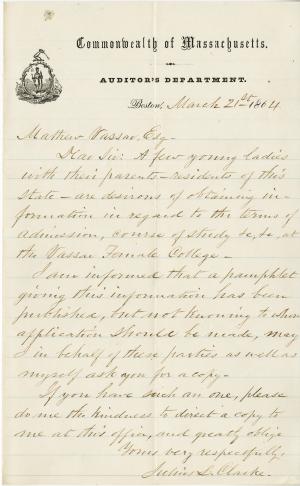 Commonwealth of Massachusetts.
AUDITOR'S DEPARTMENT.
Boston, March 21st 1864
Mathew Vassar, Esq.
Dear Sir: A few young ladies
with their parents - residents of this
State - are desirous of obtaining in-
formation in regard to the terms of
admission, course of study &c, &c, at
the Vassar Female College -
I am informed that a pamphlet
giving this information has been
published, but not knowing to whom
application should be made, may
I in behalf of these parties as well as
myself ask you for a copy -
If you have such an one, please
do me the kindness to direct a copy to
me at this office, and greatly oblige
Yours very respectfully,
Julius L. Clarke.